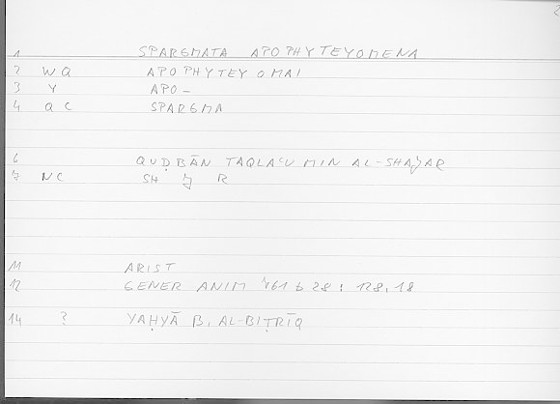 1 SPARGMATA APOPHYTEYOMENA
2 WQ APOPHYTEYOMAI
3 Y APO-
4 QC SPARGMA
6 QUḌBĀN TAQLAʿU MIN AL-SHAǦAR
7 NC SH Ǧ R
11 ARIST
12 GENER ANIM 761 b 28 : 128,18
14 ? YAḤYĀ B. AL-BIṬRĪQ